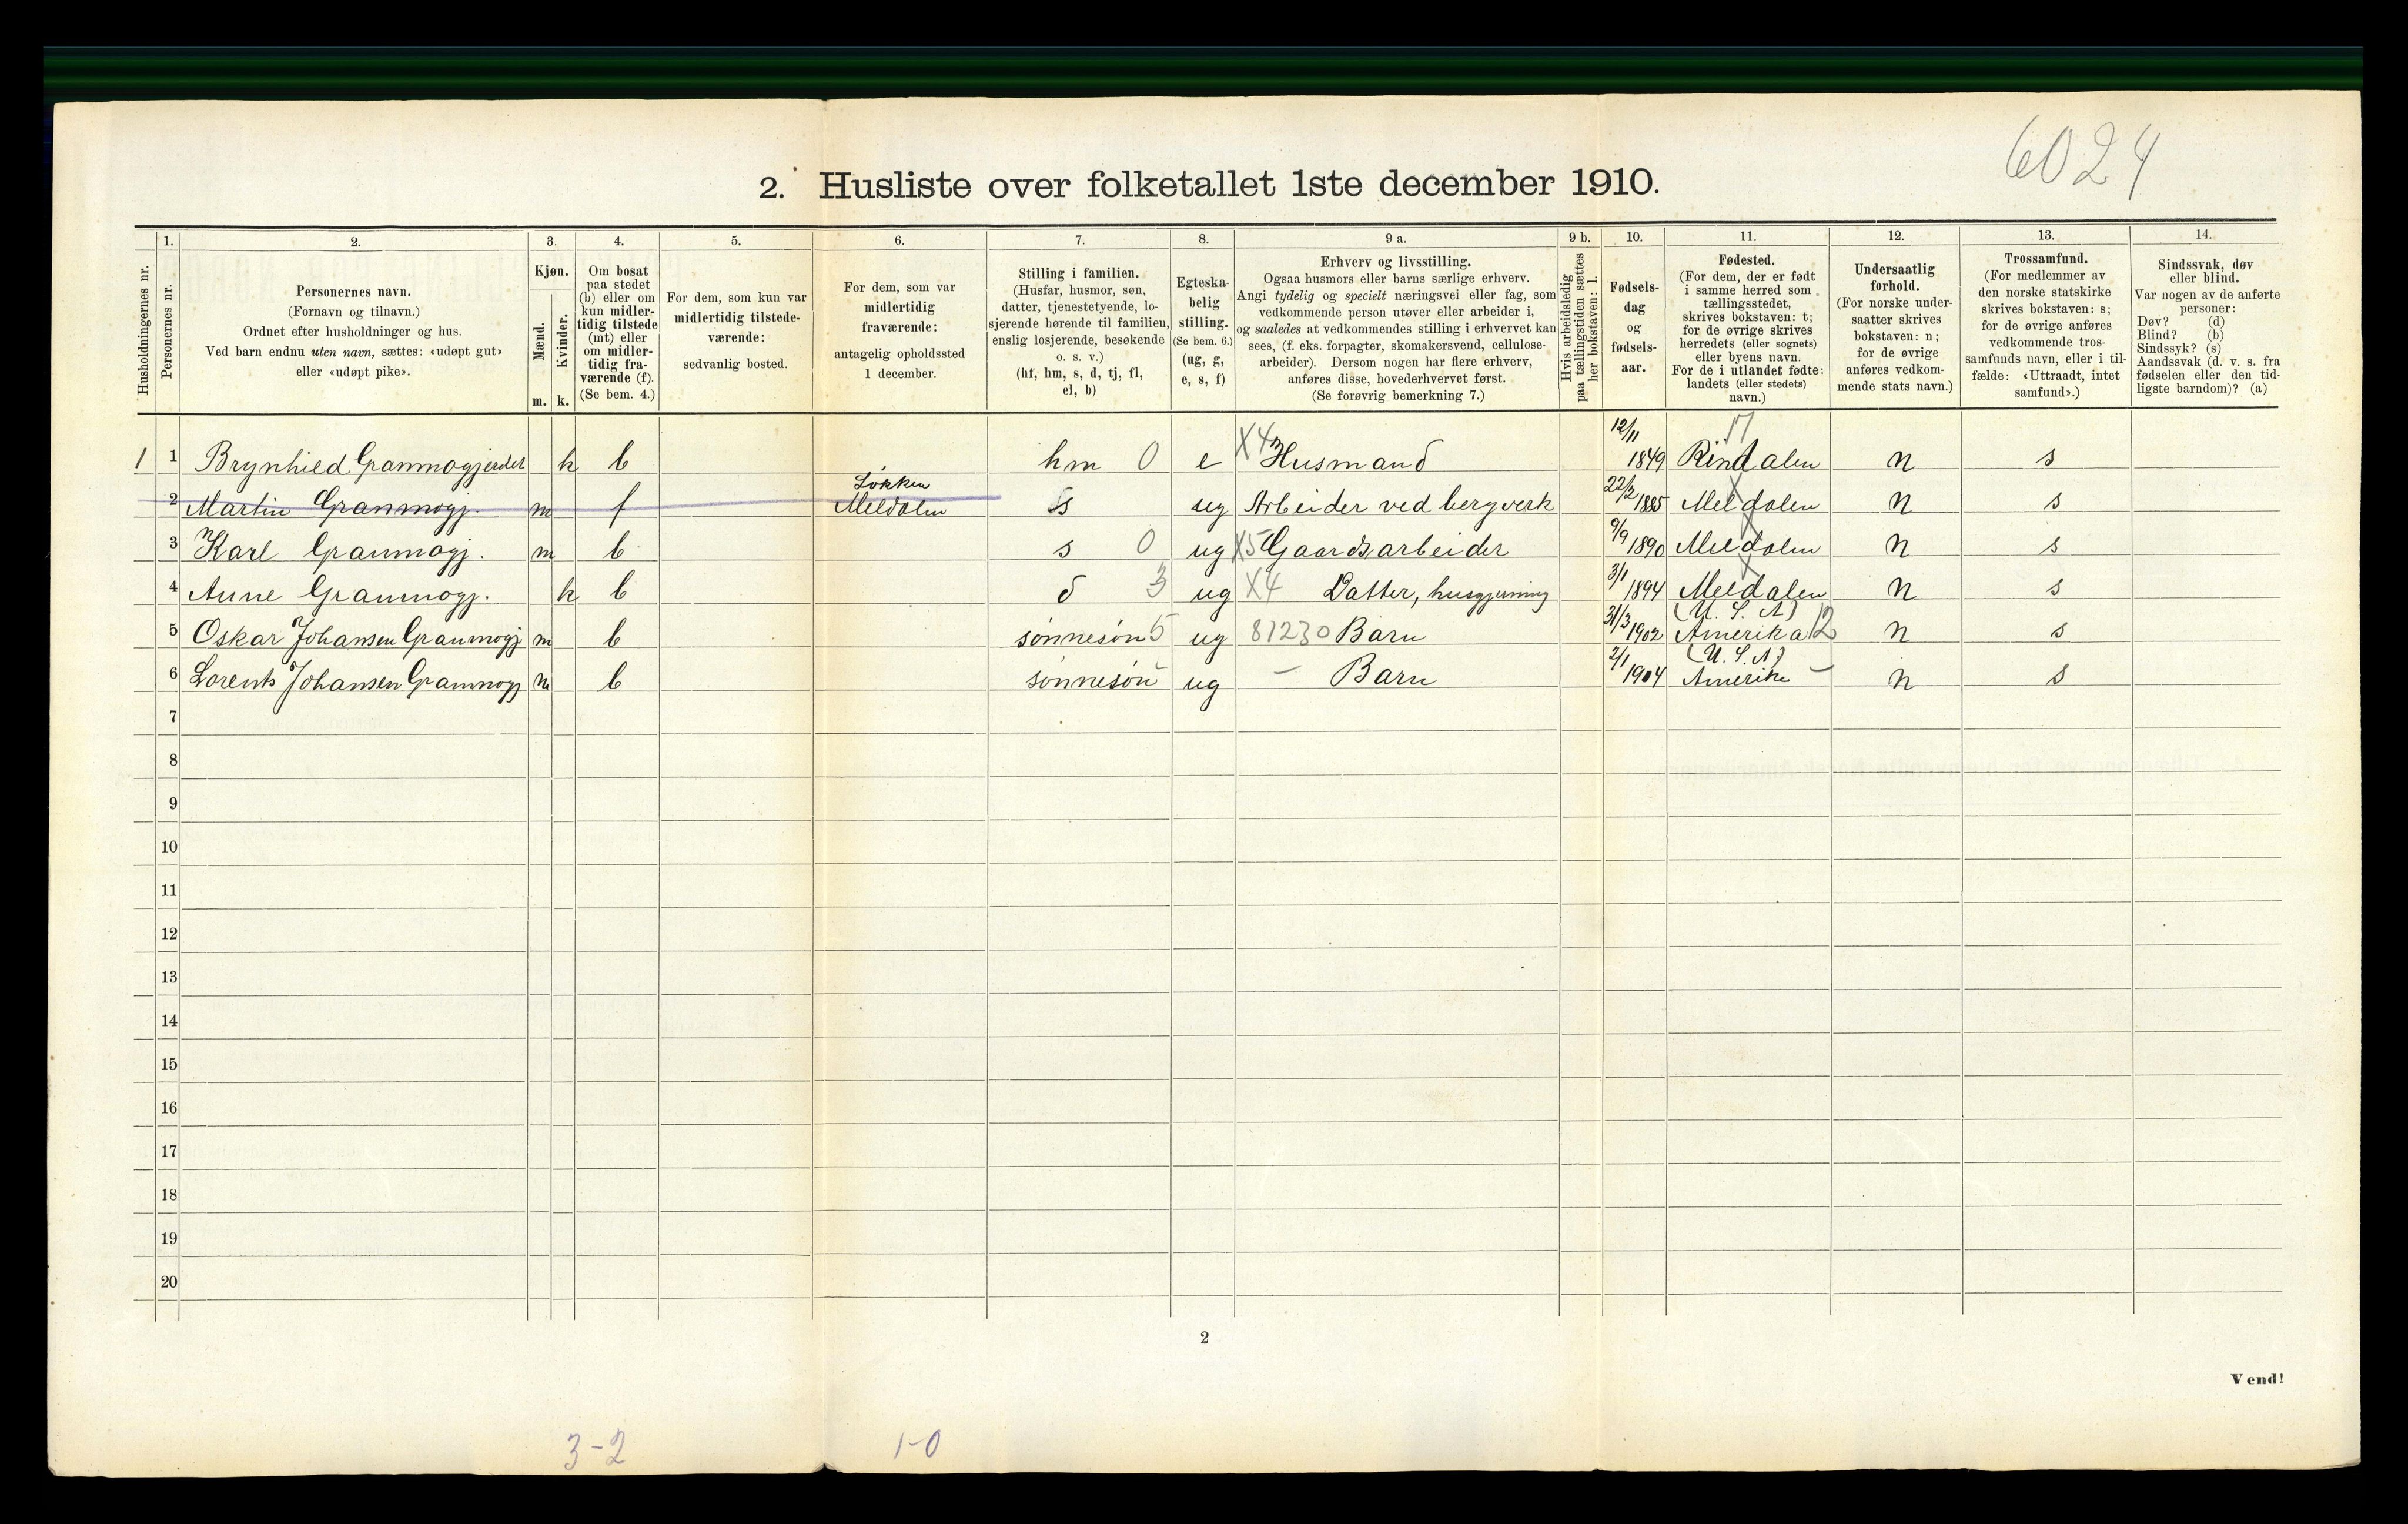 6024
2. Husliste over folketallet 1ste december 1910.
Husholdningernes nr.
1.
Personernes nr.
2.
Personernes navn.
(Fornavn og tilnavn.)
Ordnet efter husholdninger og hus.
Ved barn endnu uten navn, sættes: «udøpt gut»
eller «udøpt pike».
3.
Kjøn.
Mænd.
Kvinder.
m. k.
4.
Om bosat
paa stedet
(b) eller om
kun midler-
tidig tilstede
(mt) eller
om midler-
tidig fra-
værende (f).
(Se bem. 4.)
5.
For dem, som kun var
midlertidig tilstede-
værende:
sedvanlig bosted.
6.
For dem, som var
midlertidig
fraværende:
antagelig opholdssted
1 december.
7.
Stilling i familien.
(Husfar, husmor, søn,
datter, tjenestetyende, lo-
sjerende hørende til familien,
enslig losjerende, besøkende
o. s. v.)
(hf, hm, s, d, tj, fl,
el, b)
8.
Egteska-
belig
stilling.
(Se bem. 6.)
(ug, g,
e, s, f)
9 a.
Erhverv og livsstilling.
Ogsaa husmors eller barns særlige erhverv.
Angi tydelig og specielt næringsvei eller fag, som
vedkommende person utøver eller arbeider i,
og saaledes at vedkommendes stilling i erhvervet kan
sees, (f. eks. forpagter, skomakersvend, cellulose-
arbeider). Dersom nogen har flere erhverv,
anføres disse, hovederhvervet først.
(Se forøvrig bemerkning 7.)
9 b.
Hvis arbeidsledig
paa tællingstiden sættes
her bokstaven: l.
10.
Fødsels-
dag
og
fødsels-
aar.
11.
Fødested.
(For dem, der er født
i samme herred som
tællingsstedet,
skrives bokstaven: t;
for de øvrige skrives
herredets (eller sognets)
eller byens navn.
For de i utlandet fødte:
landets (eller stedets)
navn.)
12.
Undersaatlig
forhold.
(For norske under-
saatter skrives
bokstaven: n;
for de øvrige
anføres vedkom-
mende stats navn.)
13.
Trossamfund.
(For medlemmer av
den norske statskirke
skrives bokstaven: s;
for de øvrige anføres
vedkommende tros-
samfunds navn, eller i til-
fælde: «Uttraadt, intet
samfund».)
14.
Sindssvak, døv
eller blind.
Var nogen av de anførte
personer:
Døv? (d)
Blind? (b)
Sindssyk? (s)
Aandssvak (d. v. s. fra
fødselen eller den tid-
ligste barndom)? (a)
1 1 Brynhild Granmogjerdet k b hm 0 e X4 Husmand 12/11 1849 17 Rindalen n s
2 Martin Granmogj. m f Løkken Meldalen s ug Arbeider ved bergverk 22/2 1885 Meldalen n s
3 Karl Granmogj. m b s 0 ug X5 Gaardsarbeider 9/9 1890 Meldalen n s
4 Anne Granmogj. k b d 3 ug X4 Datter, husgjerning 3/1 1894 Meldalen n s
5 Oskar Johansen Granmogj m b sønnesøn 5 ug 87230 Barn 31/3 1902 (U. S. A) Amerika 12 n s
6 Lorents Johansen Granmogj m b sønnesøn ug – Barn 2/1 1904 (U. S. A) Amerika – n s
7
8
9
10
11
12
13
14
15
16
17
18
19
20
2
Vend!
3-2 1-0